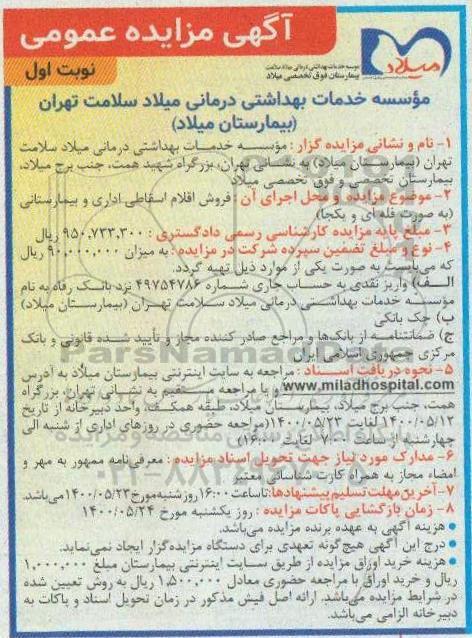 آگهی مزایده عمومی
نوبت اول
میلاد
موسسه خدمات بهداشتی درمانی میلاد سلامت
بیمارستان فوق تخصصی میلاد
مؤسسه خدمات بهداشتی درمانی میلاد سلامت تهران
(بیمارستان میلاد)
۱- نام و نشانی مزایده گزار : مؤسسه خدمات بهداشتی درمانی میلاد سلامت
تهران (بیمارستان میلاد) به نشانی تهران، بزرگراه شهید همت، جنب برج میلاد،
بیمارستان تخصصی و فوق تخصصی میلاد
۲- موضوع مزایده و محل اجرای آن : فروش اقلام اسقاطی اداری و بیمارستانی
(به صورت فله ای و یکجا)
۳- مبلغ پایه مزایده کارشناسی رسمی دادگستری : ۹۵۰,۷۳۳,۳۰۰ ریال
۴- نوع و مبلغ تضمین سپرده شرکت در مزایده : به میزان ۹۰,۰۰۰,۰۰۰ ریال
که می‌بایست به صورت یکی از موارد ذیل تهیه گردد.
الف) واریز نقدی به حساب جاری شماره ۴۹۷۵۴۷۸۶ نزد بانک رفاه به نام
مؤسسه خدمات بهداشتی درمانی میلاد سلامت تهران (بیمارستان میلاد)
ب) چک بانکی
ج) ضمانتنامه از بانک‌ها و مراجع صادر کننده مجاز و تأیید شده قانونی و بانک
مرکزی جمهوری اسلامی ایران
۵- نحوه دریافت اسناد : مراجعه به سایت اینترنتی بیمارستان میلاد به آدرس
www.miladhospital.com و یا مراجعه مستقیم به نشانی تهران، بزرگراه
همت، جنب برج میلاد، بیمارستان میلاد، طبقه همکف، واحد دبیرخانه از تاریخ
۱۴۰۰/۰۵/۱۲ لغایت ۱۴۰۰/۰۵/۲۳ (مراجعه حضوری در روزهای اداری از شنبه الی
چهارشنبه از ساعت ۷:۰۰ لغایت ۱۶:۰۰)
۶- مدارک مورد نیاز جهت تحویل اسناد مزایده : معرفی‌نامه ممهور به مهر و
امضاء مجاز به همراه کارت شناسایی معتبر
۷- آخرین مهلت تسلیم پیشنهادها: تا ساعت ۱۶:۰۰ روز شنبه مورخ ۱۴۰۰/۰۵/۲۳ می‌باشد.
۸- زمان بازگشایی پاکات مزایده : روز یکشنبه مورخ ۱۴۰۰/۰۵/۲۴
• هزینه آگهی به عهده برنده مزایده می‌باشد.
• درج این آگهی هیچ‌گونه تعهدی برای دستگاه مزایده‌گزار ایجاد نمی‌نماید.
• هزینه خرید اوراق مزایده از طریق سایت اینترنتی بیمارستان مبلغ ۱,۰۰۰,۰۰۰
ریال و خرید اوراق با مراجعه حضوری معادل ۱,۵۰۰,۰۰۰ ریال به روش تعیین شده
در شرایط مزایده می‌باشد. ارائه اصل فیش مذکور در زمان تحویل اسناد و پاکات به
دبیرخانه الزامی می‌باشد.
ParsNamadData